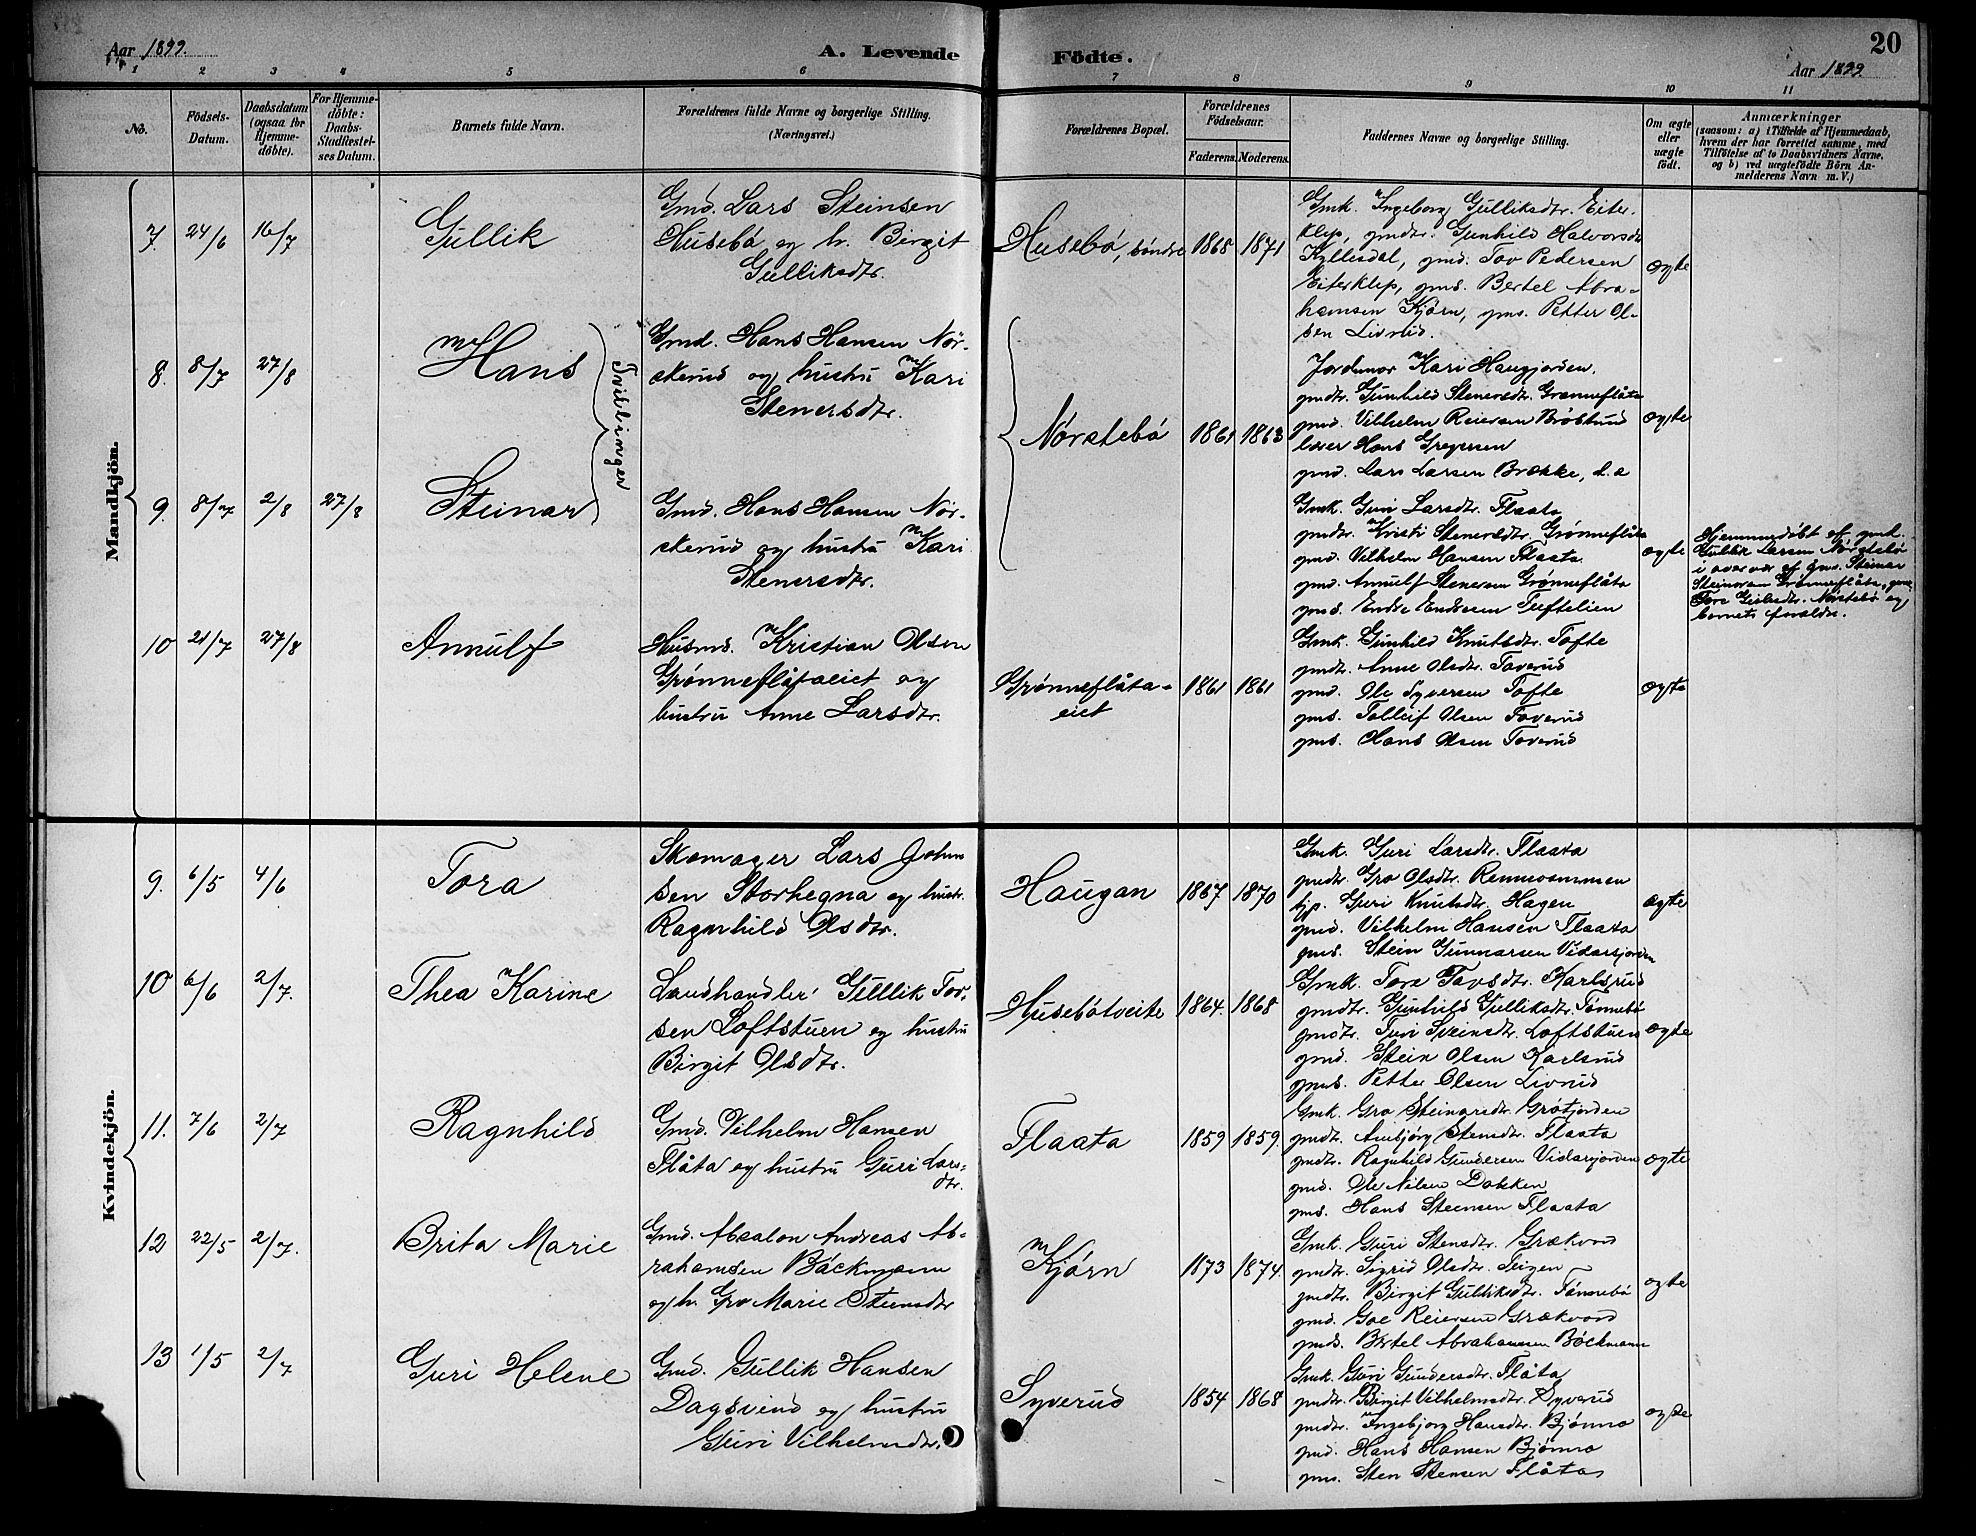 Aar 1899.
A. Levende
Födte.
20
Aar 1899
1 2 3 4 5 6 7 8 9 10 11
No.
Födsels-
Datum.
Daabsdatum
(ogsaa for
Hjemme-
döbte).
For Hjemme-
döbte:
Daabs-
Stadfæstel-
ses Datum.
Barnets fulde Navn.
Forældrenes fulde Navne og borgerlige Stilling.
(Næringsvei.)
Forældrenes Bopæl.
Forældrenes
Födselsaar.
Faderens. Moderens.
Faddernes Navne og borgerlige Stilling.
Om ægte
eller
uægte
födt.
Anmærkninger
(saasom: a) i Tilfælde af Hjemmedaab,
hvem der har forrettet samme, med
Tilföielse af to Daabsvidners Navne,
og b) ved uægtefödte Börn An-
melderens Navn m. V.)
Mandkjön.
7. 24/6 16/7
Gullik
Gmd. Lars Steinsen
Husebö og h. Birgit
Gulliksdtr.
Husebö, söndre 1868 1871
Gmk. Ingeborg Gulliksdtr. Eiter-
klep, gmdtr. Gunhild Halvorsdtr
Kyllesdal, gmd. Tov Pedersen
Eiterklep, gms. Bertel Abra-
hamsen Kjörn, gms. Petter Ol-
sen Livrud.
ægte
8. 8/7 27/8
Hans
Tvillinger
Gmd. Hans Hansen Nör-
sterud og hustru Kari
Stenersdtr.
Nörstebö 1861 1863
Jordmor Kari Haugjorden.
gmdtr. Gunhild Stenersdtr. Grønneflåta
gmd. Vilhelm Reiersen Bröstrud
lærer Hans Gregersen
gmd. Lars Larsen Brække, d.a
ægte
9. 8/7 2/8 27/8
Steinar
Gmd. Hans Hansen Nör-
sterud og hustru Kari
Stenersdtr.
Gmk. Guri Larsdtr. Flaata
gmdtr. Kristi Stenersdtr. Grønneflåta
gmd. Vilhelm Hansen Flaata
gmd. Annulf Stenersen Grønneflåta
gms. Endre Endresen Tuftelien
ægte
Hjemmedöbt af gmd.
Gullik Larsen Nörstebö
i overvær af gms. Steinar
Steinarsen Grønneflåta, gmk.
Tore Nörstebö og
barnets forældre.
10 21/7 27/8
Annulf
Husmd. Kristian Olsen
Grønneflåtaeiet og
hustru Anne Larsdtr.
Grønneflåta-
eiet
1861 1861
Gmk. Gunhild Knutsdtr. Tofte
gmdtr. Anne Olsdtr. Taverud
gmd. Ole Syversen Tofte
gms. Tolleif Olsen Taverud
gms. Hans Olsen Taverud
ægte
Kvindekjön.
9. 6/5 4/6
Tora
Skomager Lars Johan
sen Storhegna og hustr.
Ragnhild Olsdtr.
Haugan 1867 1870
Gmk. Guri Larsdtr. Flaata
gmdtr. Gro Olsdtr.
tjp. Guri Knutsdtr. Hagen
gmd. Vilhelm Hansen Flaata
gms. Stein Gunnarsen Vidarsjorden
ægte
10 6/6 2/7.
Thea Karine
Landhandler Gullik Tor-
sen Loftstuen og hustru
Birgit Olsdtr.
Husebötveite 1864. 1868
Gmk. Tore Tovsdtr. Karlsrud
gmdtr. Gunhild Gulliksdtr. Tönnebö
gmdtr. Turi Sveinsdtr. Loftstuen
gmd. Stein Olsen Karlsrud
gms. Petter Olsen Livrud
ægte
11. 7/6 2/7
Ragnhild
Gmd. Vilhelm Hansen
Flåta og hustru Guri Lars-
dtr.
Flaata 1859 1859.
Gmk. Gro Steinarsdtr. Grötjorden
gmdtr. Ambjörg Stensdtr. Flaata
gmdtr. Ragnhild Gundersen Vidarsjorden
gmd. Ole Nilsen Dokken
gms. Hans Steensen Flaata
ægte
12 22/5 2/7.
Brita Marie
Gmd. Absalon Andreas Ab-
rahamsen Böckmann
og h. Gro Marie Steensdtr
Kjörn 1873 1874.
Gmk. Guri Stensdtr. Grækvord
gmdtr. Sigrid Olsdtr. Teigen
gmdtr. Birgit Gulliksdtr. Tönnebö
gmd. Goe Reiersen Grækvord
gmd. Bertel Abrahamsen Böckmann
ægte
13 1/5 2/7
Guri Helene
Gmd. Gullik Hansen
Dagsvend og hustru
Guri Vilhelmsdtr.
Syverud 1854 1868
Gmk. Guri Gundersdtr. Flåta
gmdtr. Birgit Vilhelmsdtr. Syverud
gmdtr. Ingebjorg Hansdtr. Bjönno
gmd. Hans Hansen Bjönno
gms. Sten Stensen Flåta
ægte